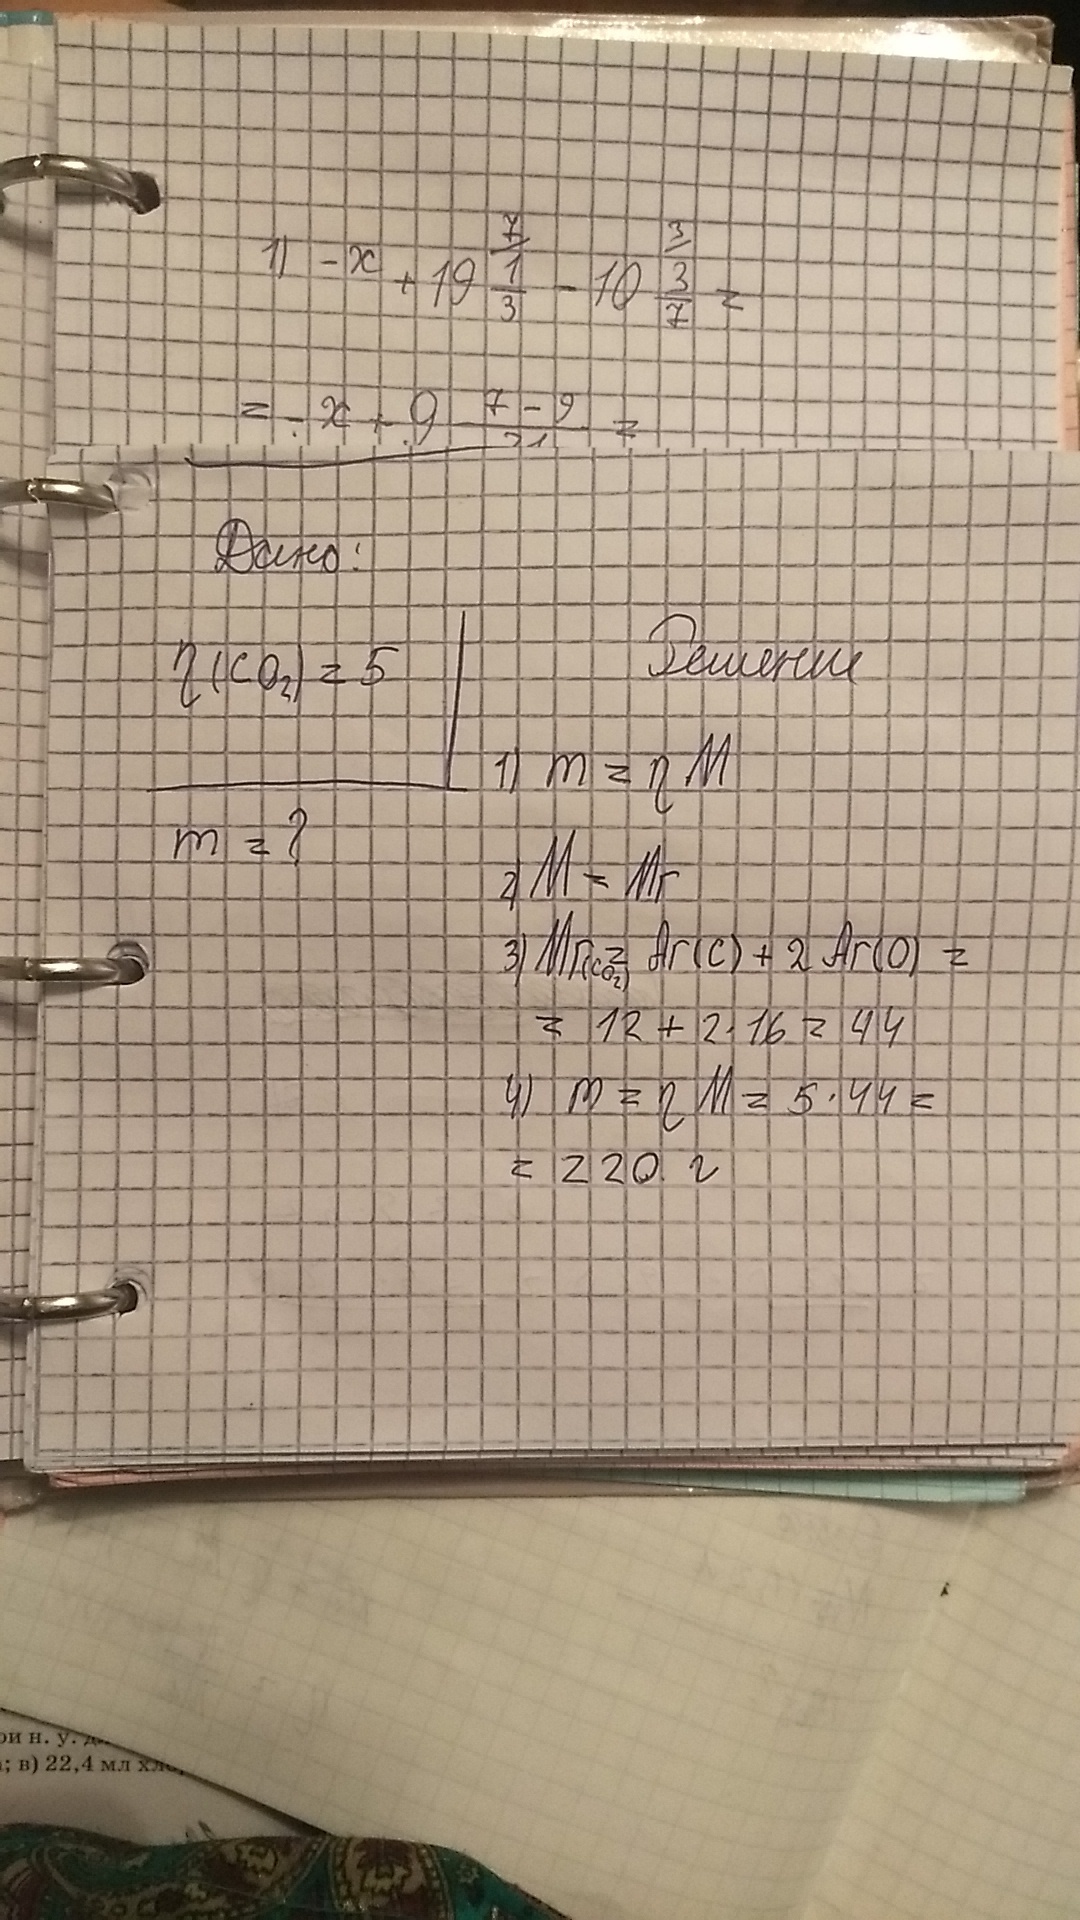 7 3
1) -x + 19 1/3 - 10 3/7 =
= -x + 9 7-9/21 =
Дано:
η(CO₂) = 5
Решение
1) m = η M
m = ?
2) M = Mr
3) Mr(CO₂) = Ar(C) + 2 Ar(O) =
= 12 + 2·16 = 44
4) m = η M = 5·44 =
= 220 г
ри н. у.
; в) 22,4 мл